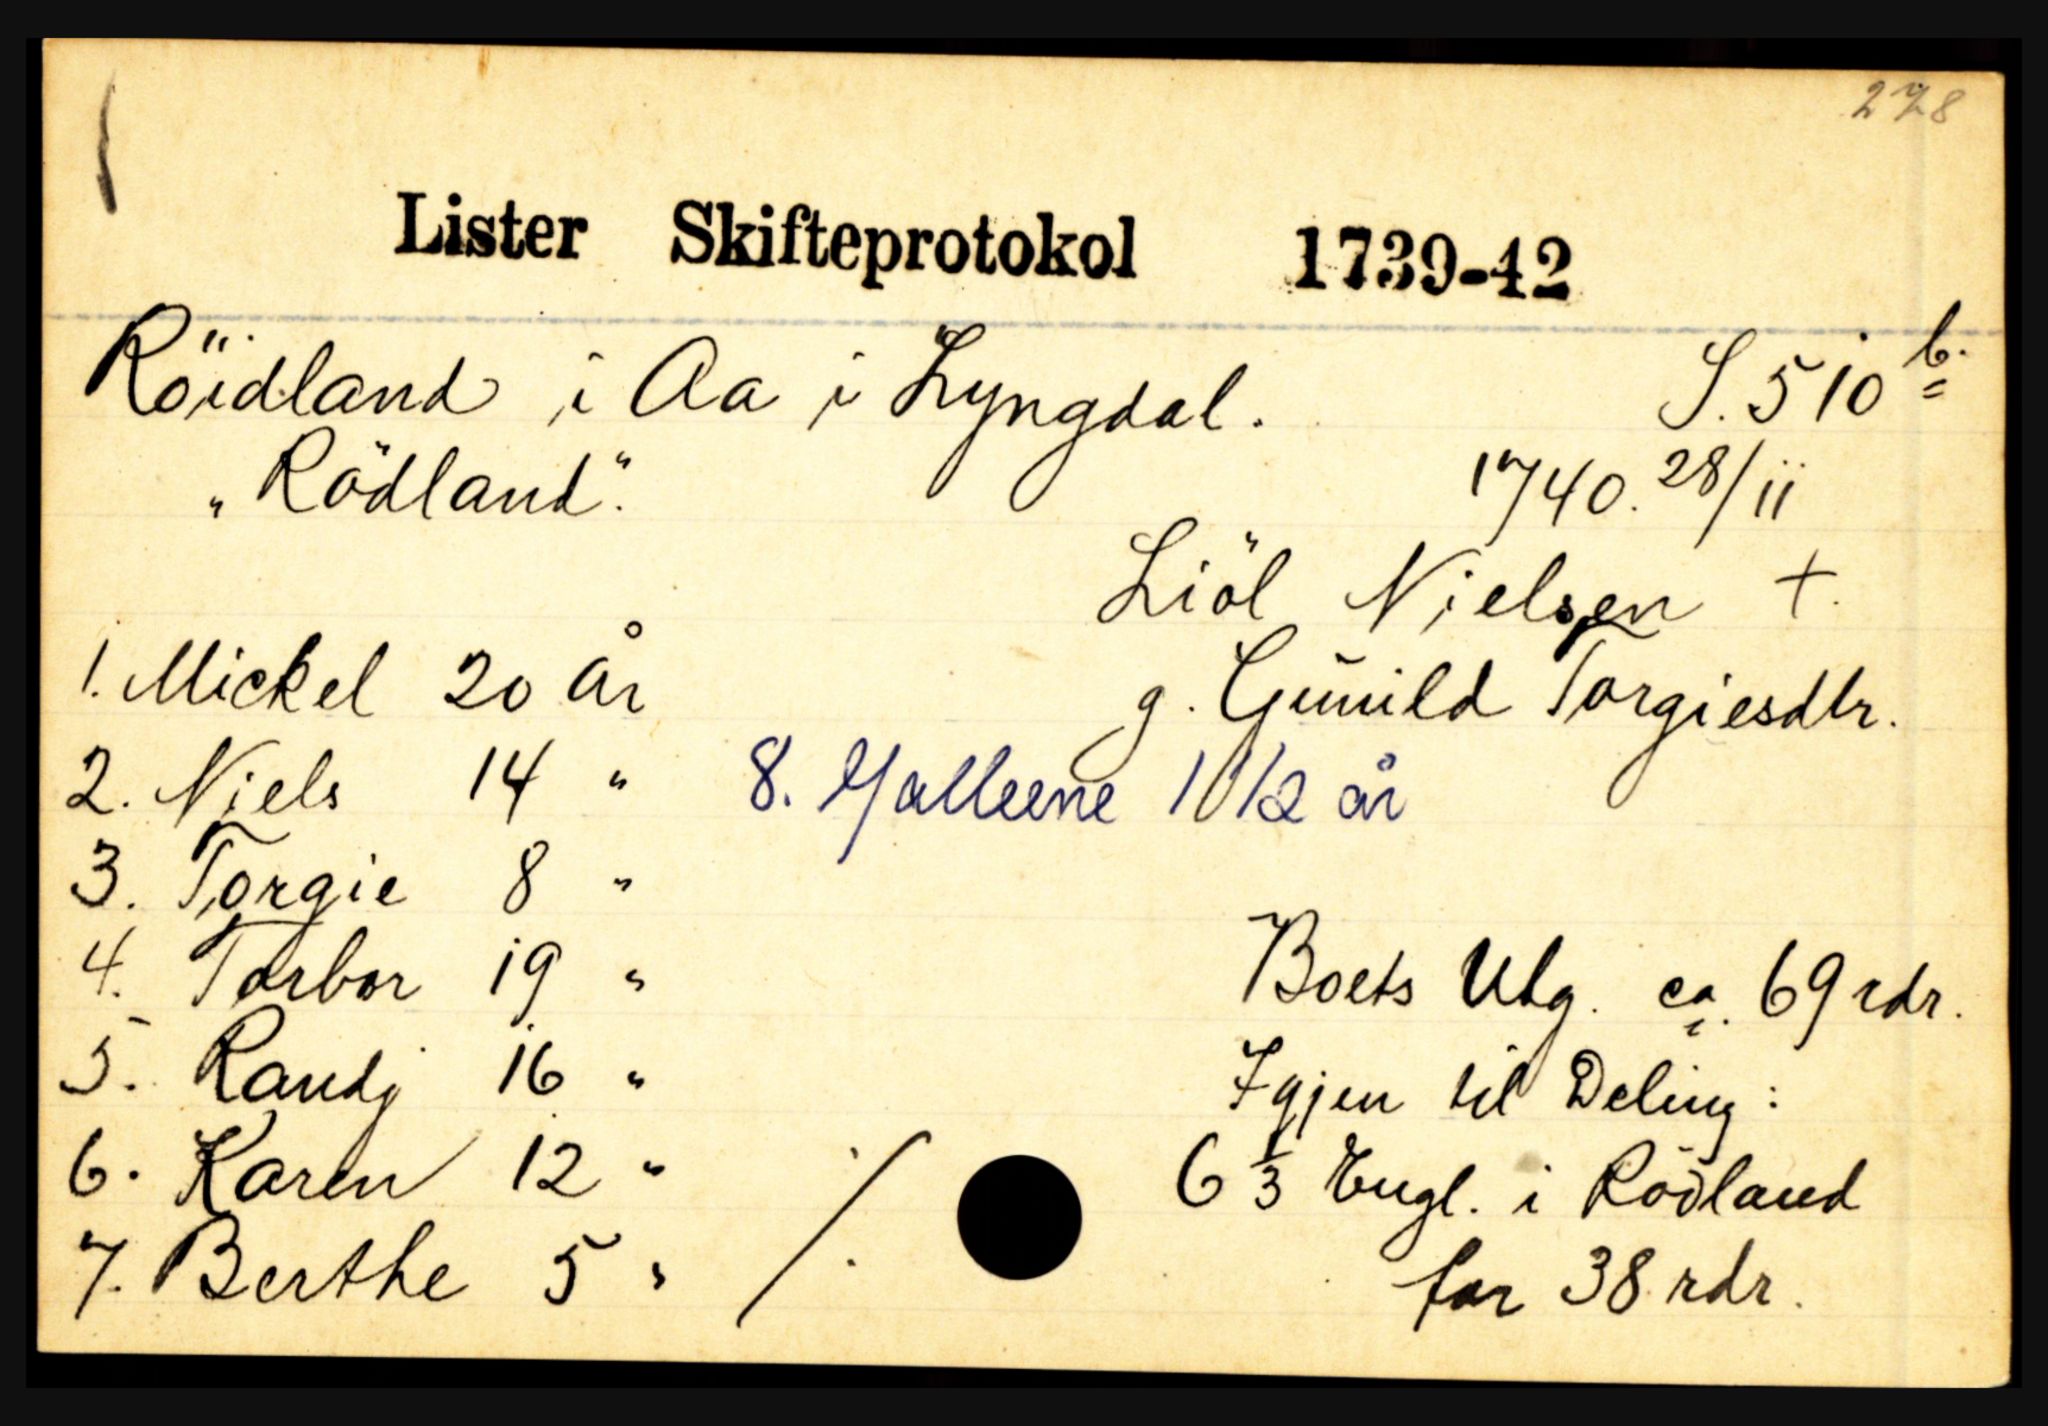 278
Lister Skifteprotokol 1739-42
Röidland i Aa i Lyngdal. S. 510 b.
"Rödland". 1740. 28/11
Liöl Nielsen +.
1. Mickel 20 År g. Gunild Torgiesdtr.
2. Niels 14 " 8. Malleene 1 1/2 år
3. Torgie 8 "
4. Torbor 19 " Boets Utg. ca. 69 rdr.
5. Randj 16 " Igjen til Deling:
6. Karen 12 " 6 1/3 Engl. i Rödland
7. Berthe 5 " ./. for 38 rdr.